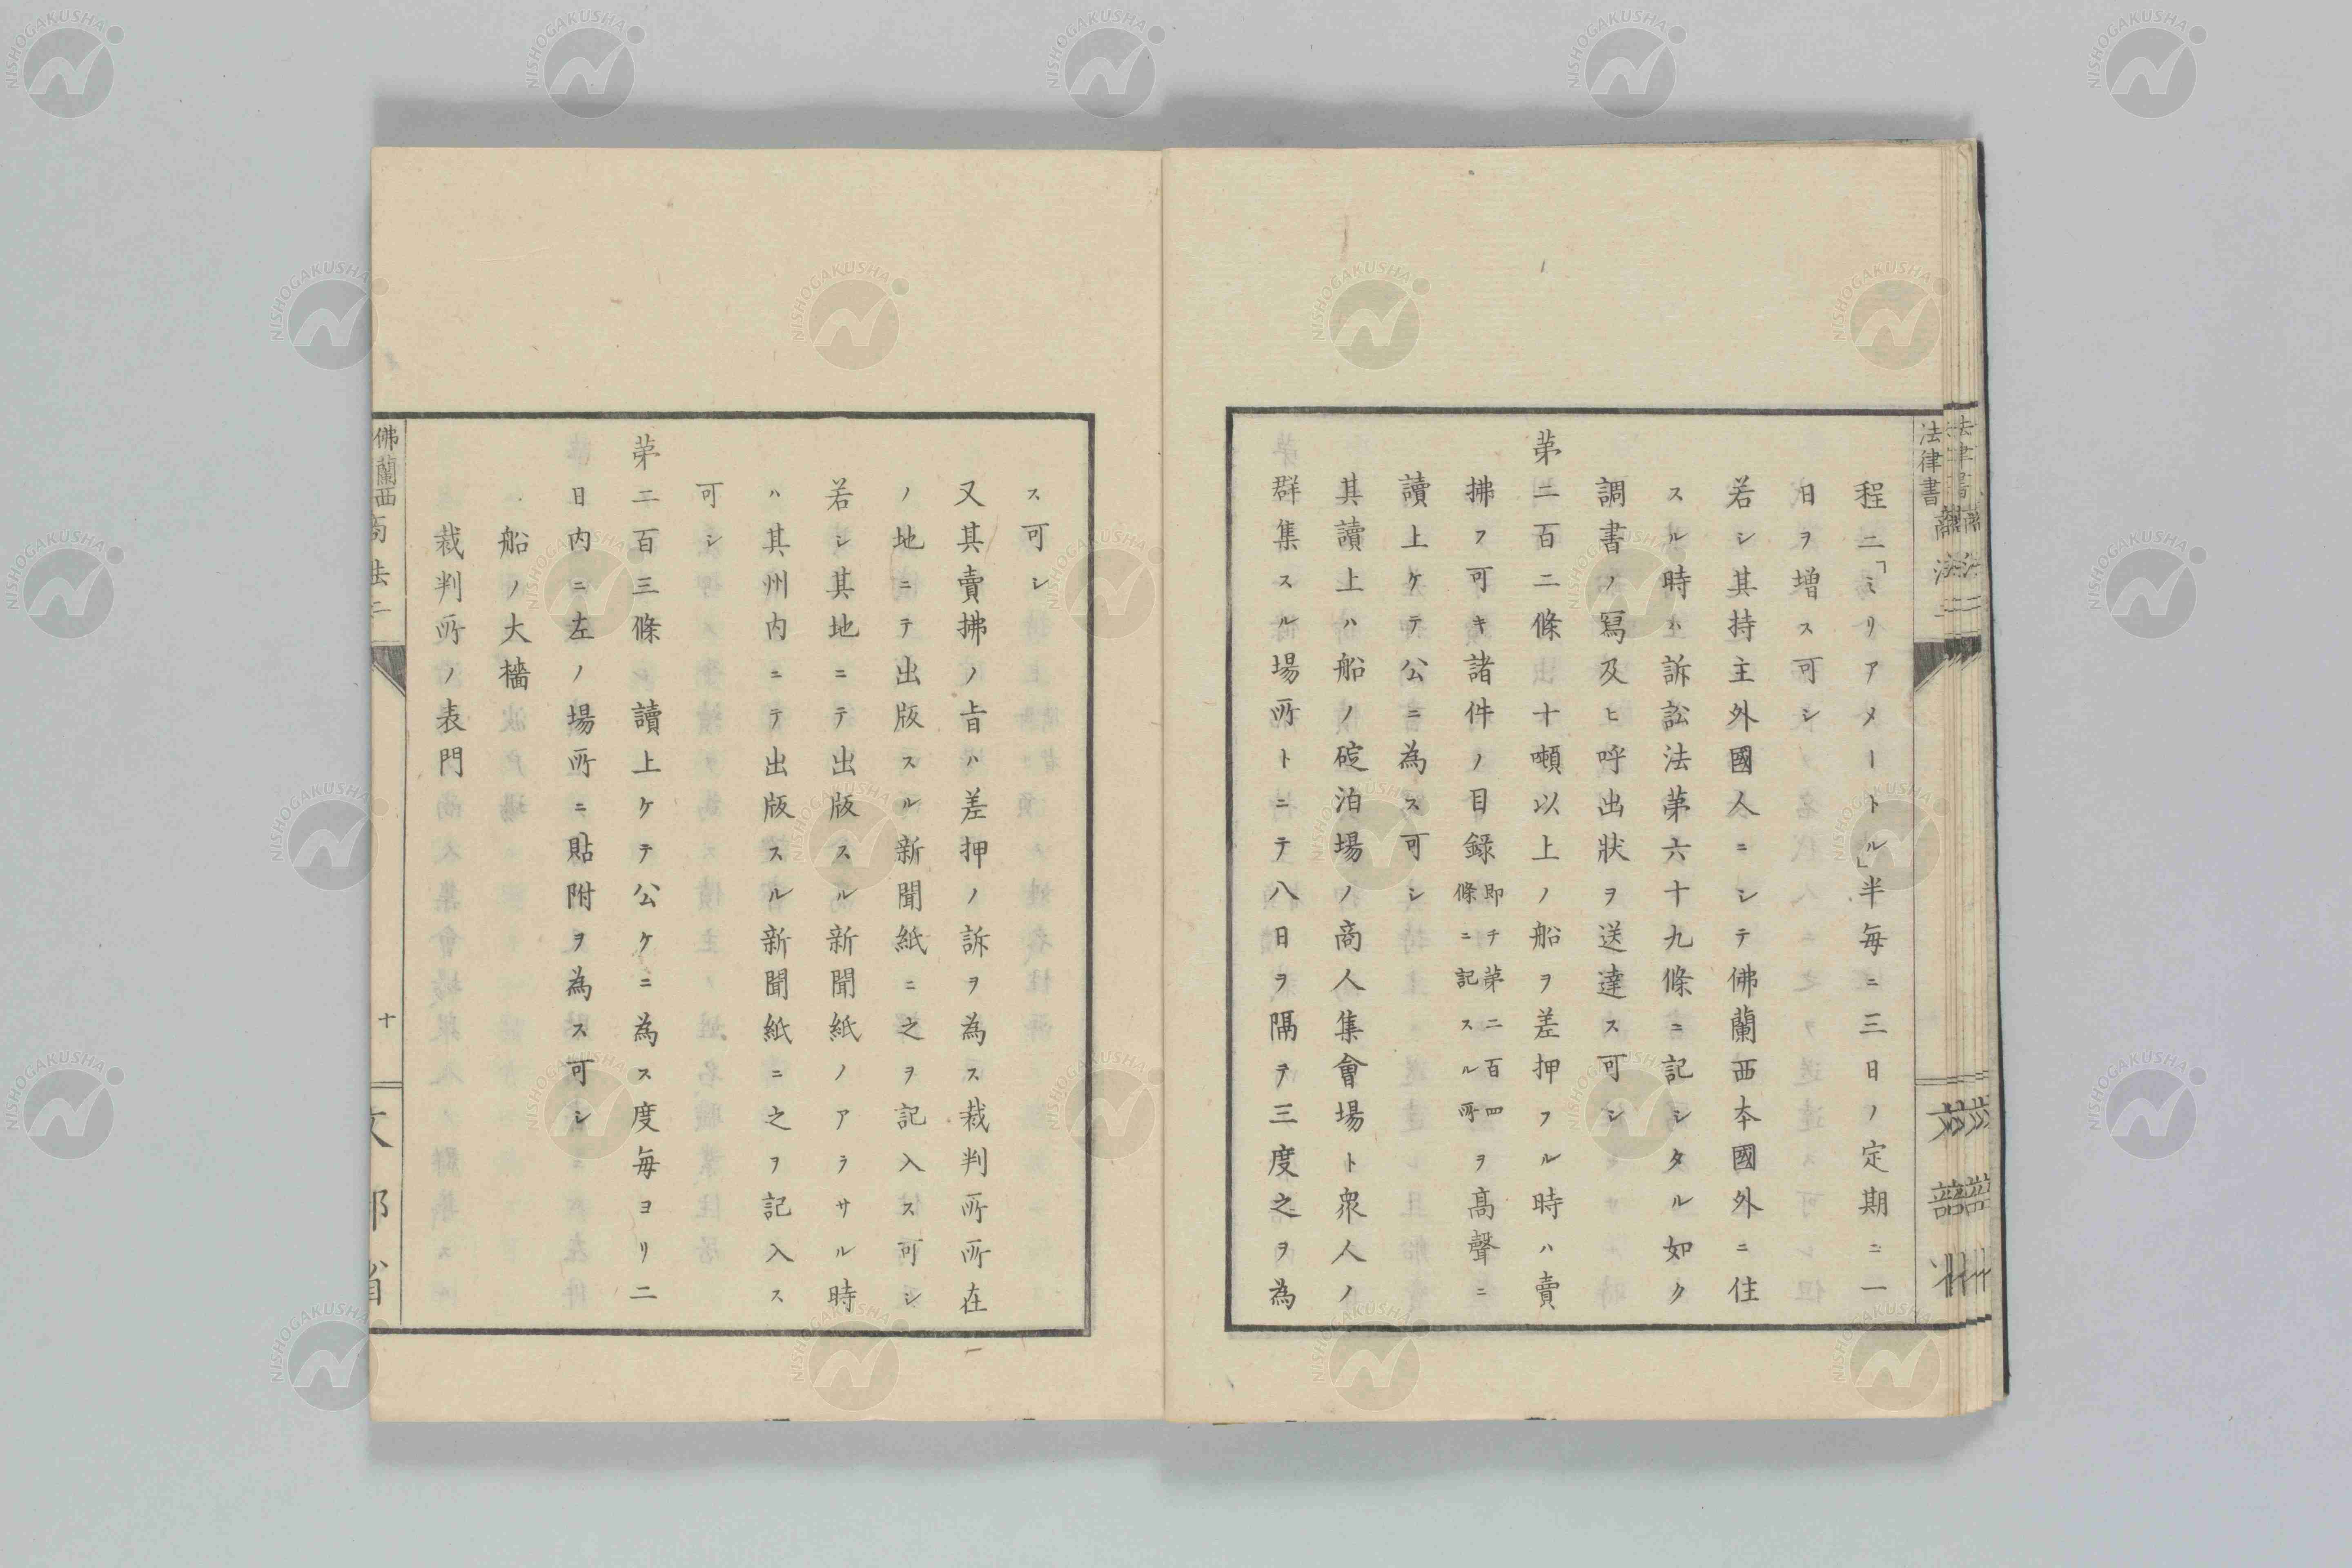 程二「ミリアメートル」半每ニ三日ノ定期ニ一
日ヲ増ス可シ
若シ其持主外國人ニシテ佛蘭西本國外ニ住
スル時ハ訴訟法第六十九條ニ記シタル如ク
調書ノ寫及ヒ呼出狀ヲ送達ス可シ
第二百二條出十噸以上ノ船ヲ差押フル時ハ賣
拂フ可キ諸件ノ目錄即チ第二百四條ニ記スル所ヲ高聲ニ
讀上ケテ公ニ為ス可シ
其讀上ハ船ノ碇泊場ノ商人集會場ト衆人ノ
群集スル場所トニテ八日ヲ隔テ三度之ヲ為
ス可シ
又其賣拂ノ旨ハ差押ノ訴ヲ為ス裁判所所在
ノ地ニテ出版スル新聞紙ニ之ヲ記入ス可シ
若シ其地ニテ出版スル新聞紙ノアラサル時
ハ其州内ニテ出版スル新聞紙ニ之ヲ記入ス
可シ
第二百三條 讀上ケテ公ケニ為ス度每ヨリ二
日内ニ左ノ場所ニ貼附ヲ為ス可シ
船ノ大檣
裁判所ノ表門
佛蘭西商法二
十
文部省
法律書
NISHOGAKUSHA